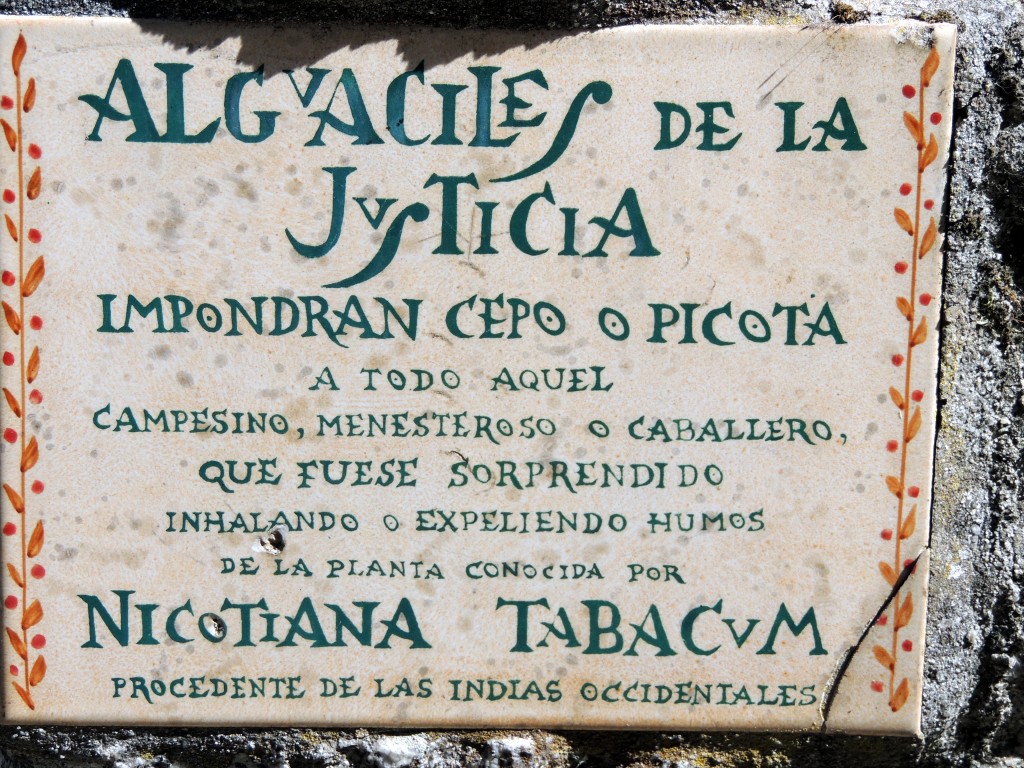 ALGVACILES DE LA
JVSTICIA
IMPONDRAN CEPO O PICOTA
A TODO AQUEL
CAMPESINO, MENESTEROSO O CABALLERO,
QUE FUESE SORPRENDIDO
INHALANDO O EXPELIENDO HUMOS
DE LA PLANTA CONOCIDA POR
NICOTIANA TABACVM
PROCEDENTE DE LAS INDIAS OCCIDENTALES